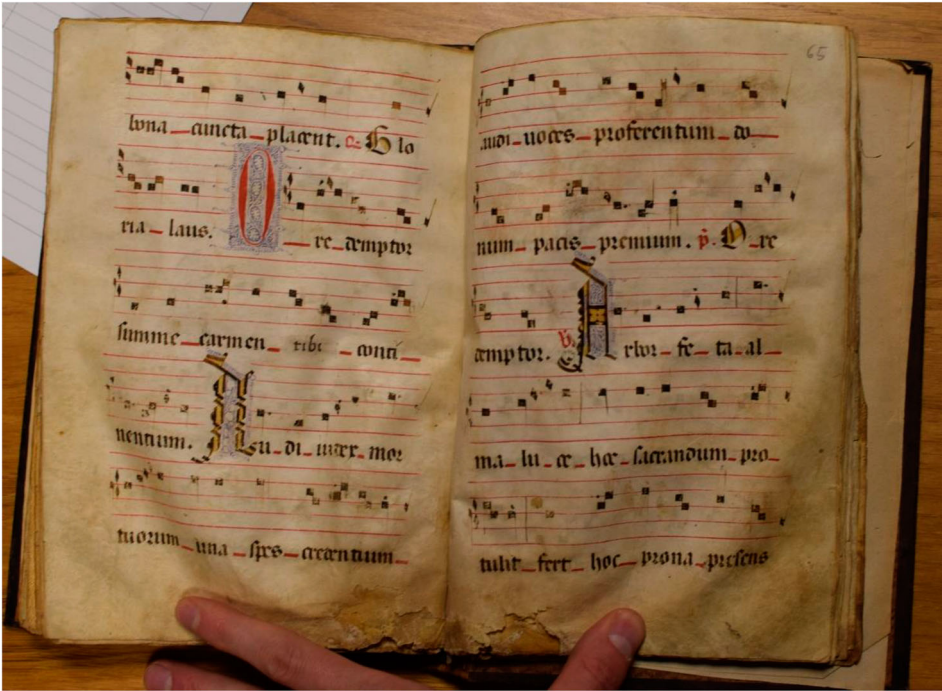 bona cuncta placent. P. Glo
ria laus. O redemptor
summe carmen tibi conci
nentium. Audi iudex mor
tuorum una spes credentium
65
audi uoces proferentum do
num pacis premium. p. O re
demptor. V. Arbor feta al
ma luce hoc sacrandum pro
tulit fert hoc prona presens